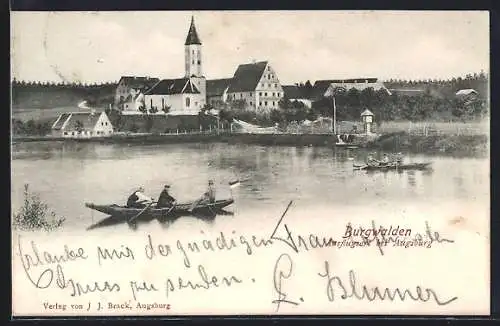 Burgwalden
Ausflugsort bei Augsburg
Erlaube mir der gnädigen Frau
Gruss zu senden. L. Blumer.
Verlag von J. J. Brack, Augsburg